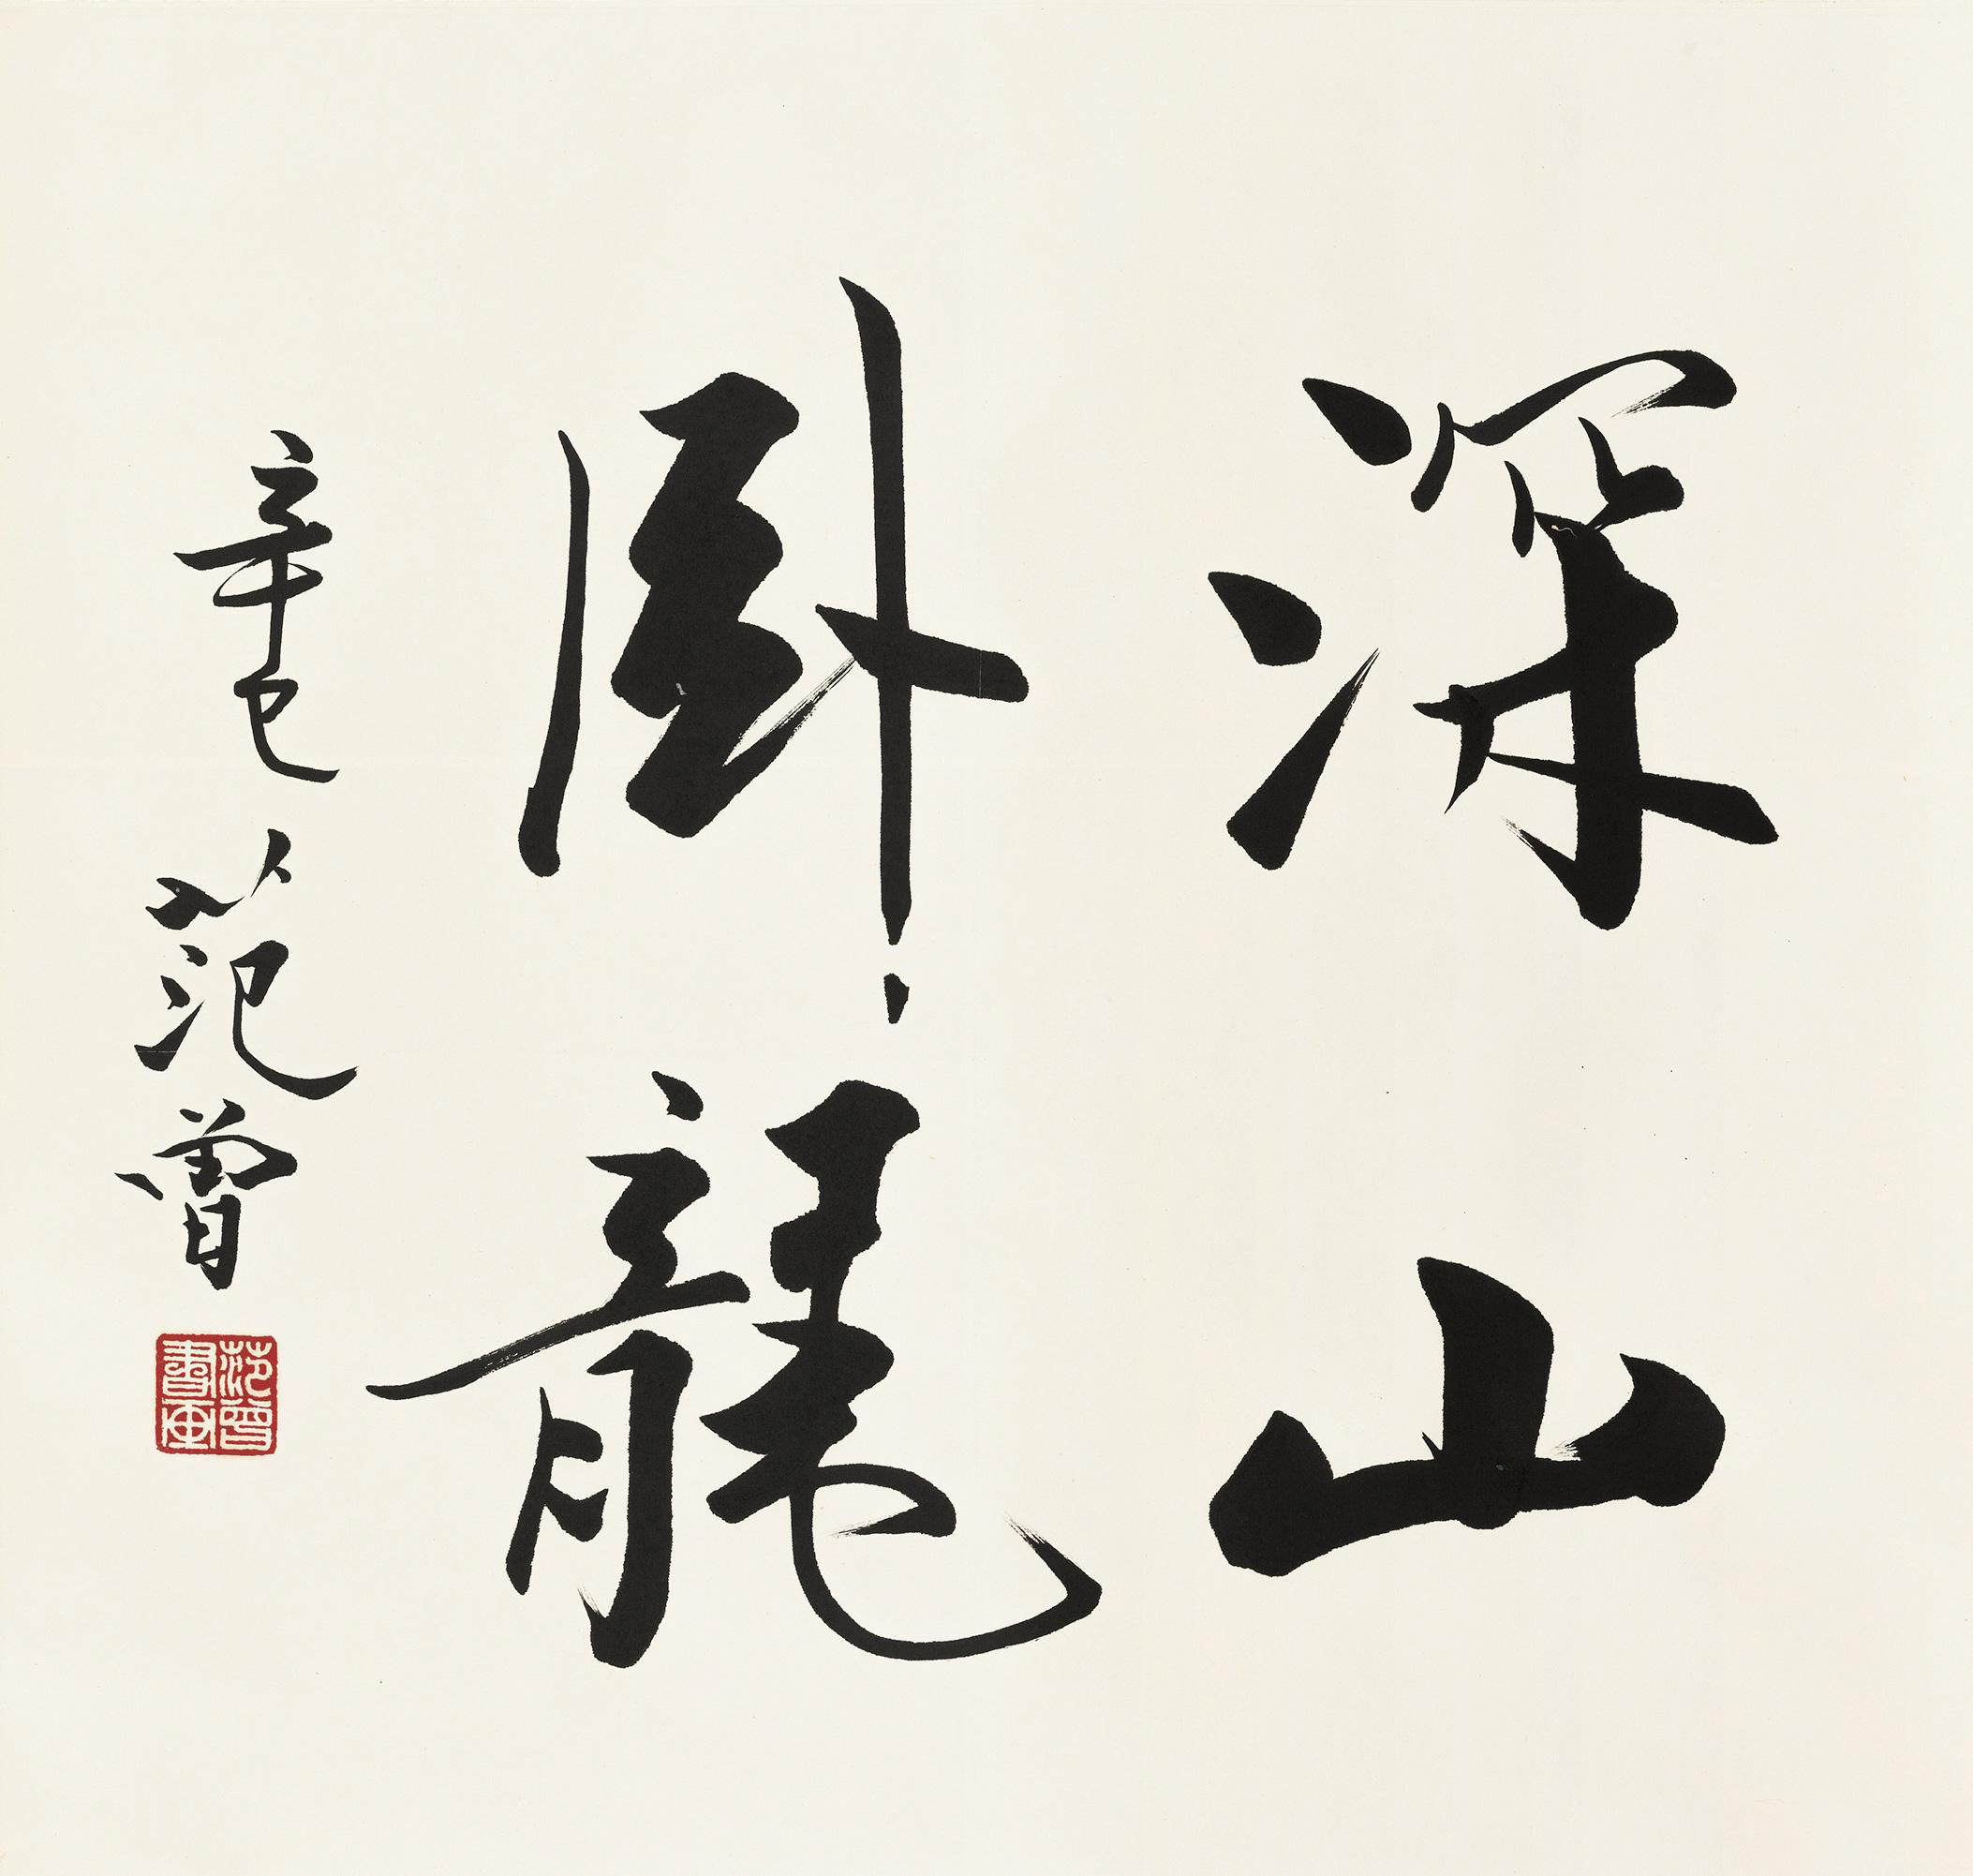 深山
卧龍
辛巳 范曾
范曾
書画